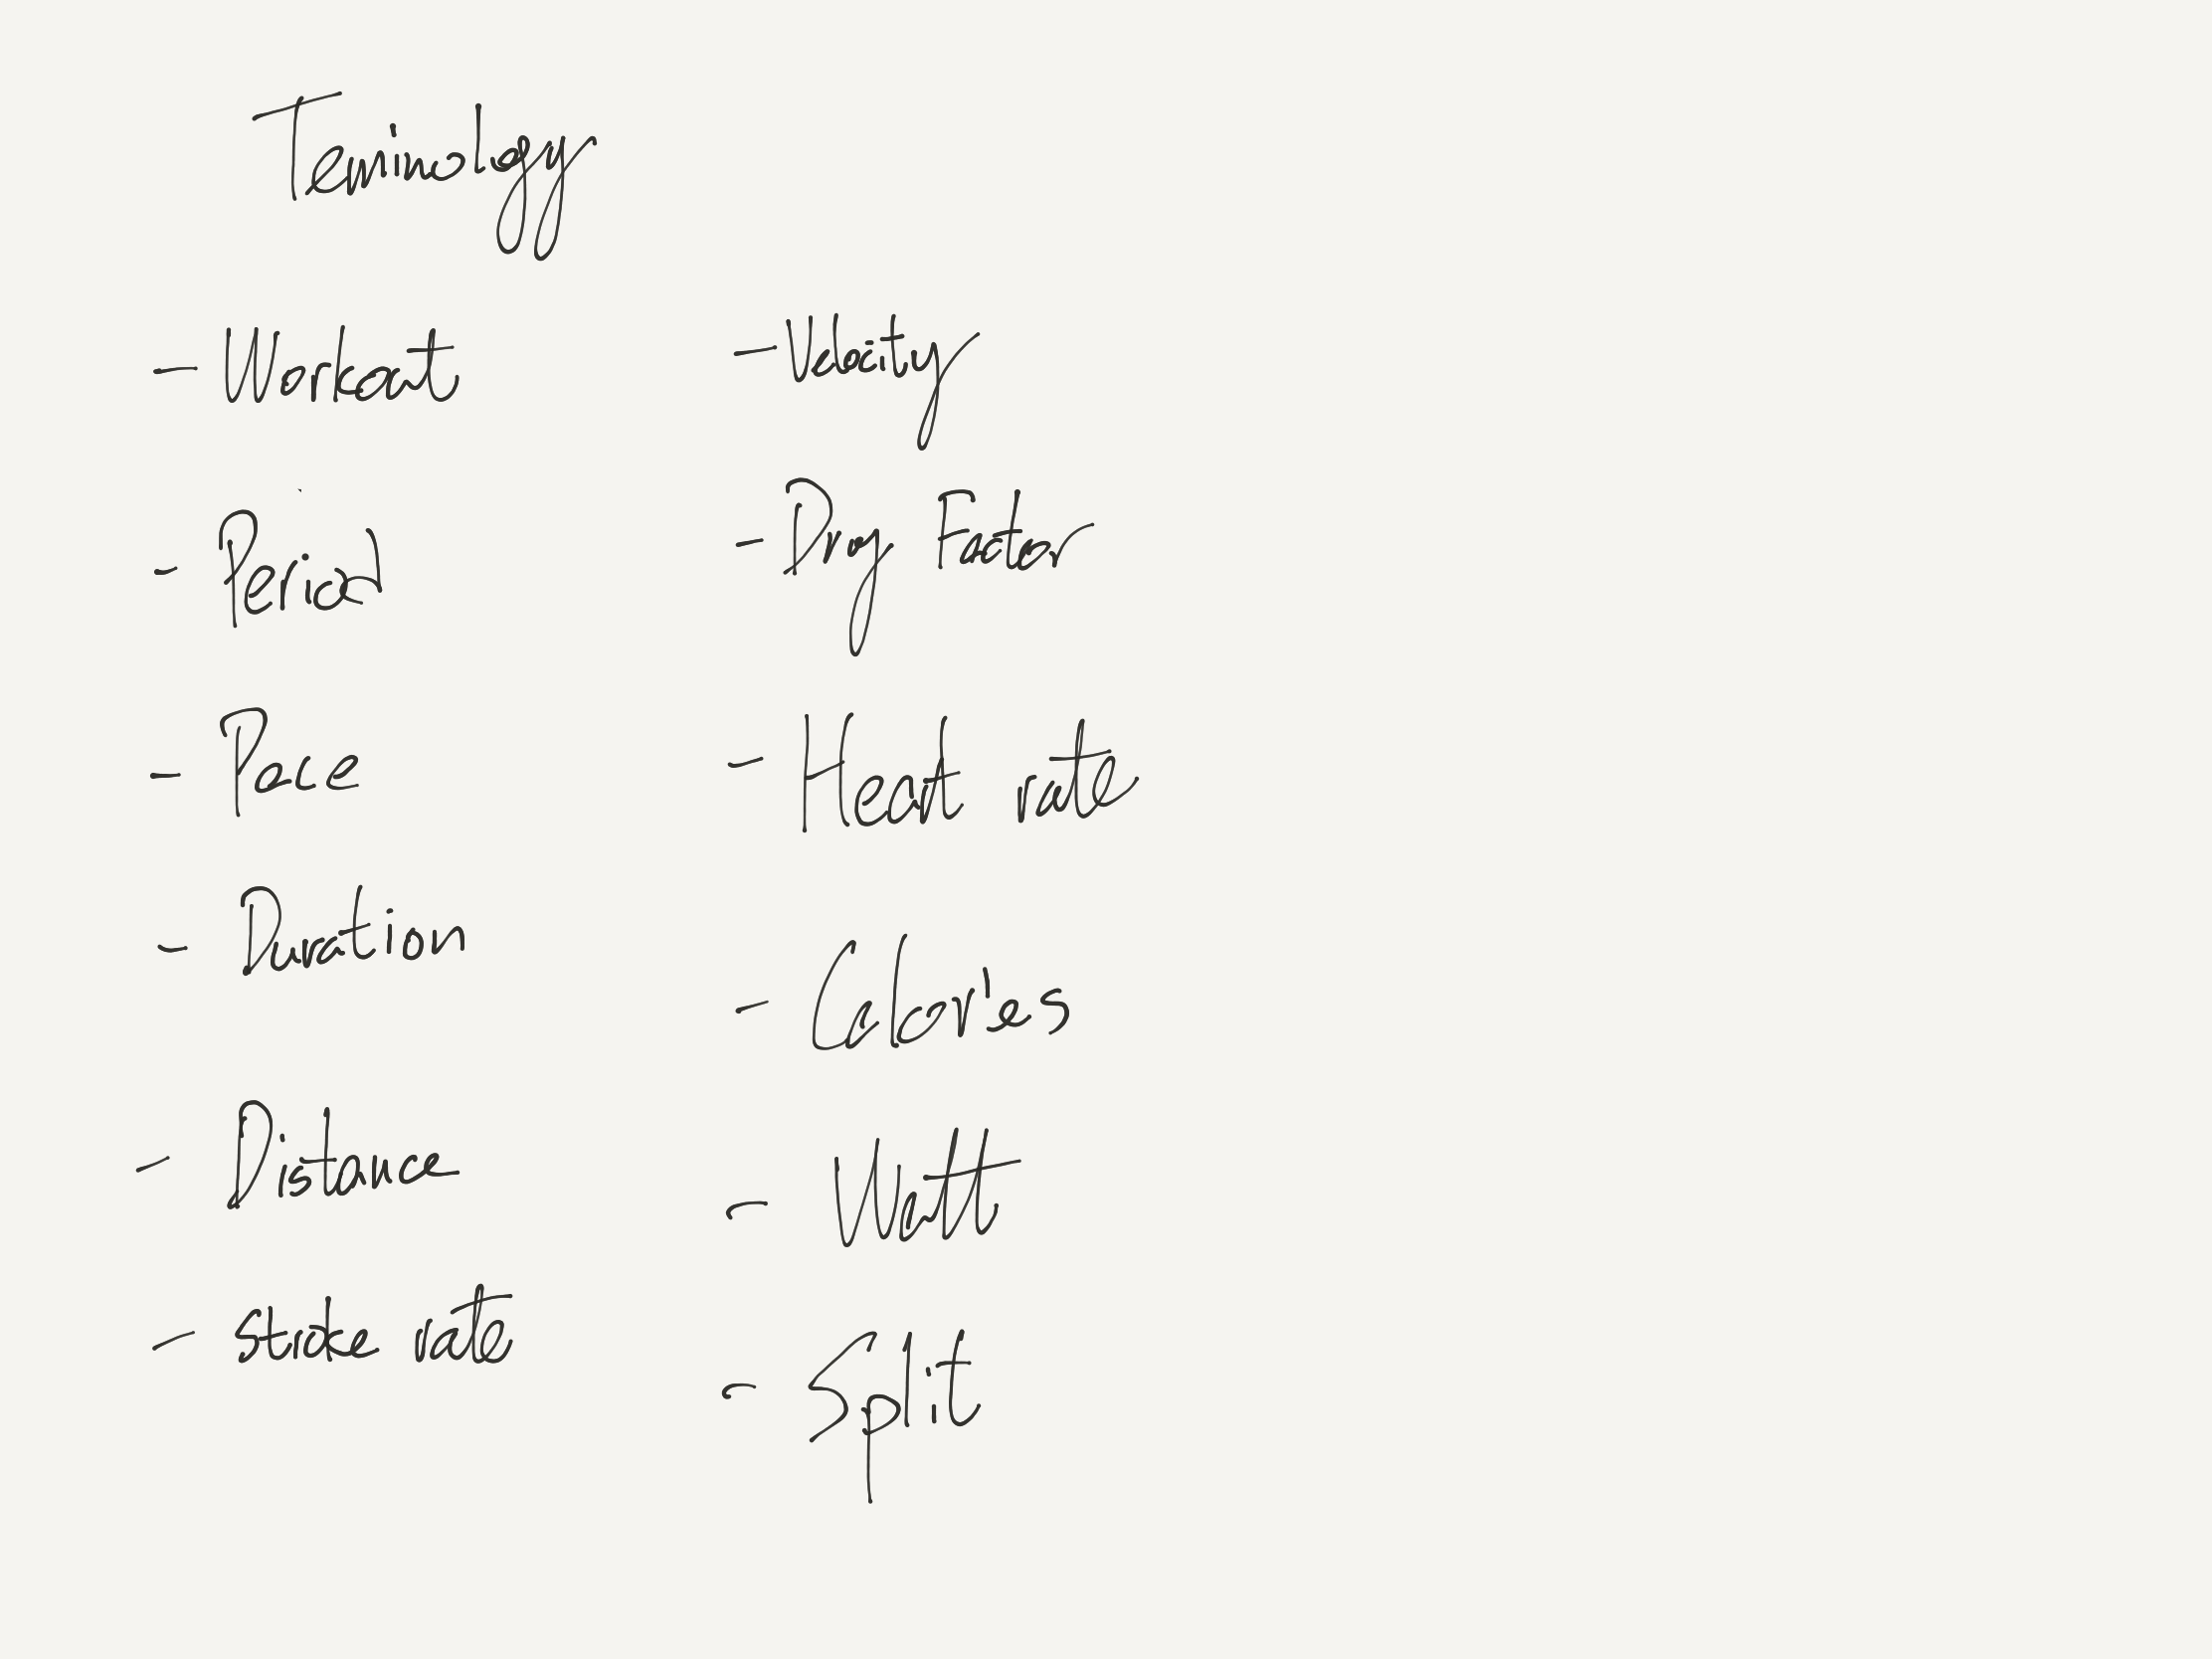 Terminology
- Workout
- Period
- Pace
- Duration
- Distance
- Stroke rate
- Velocity
- Drag Factor
- Heart rate
- Calories
- Watt
- Split